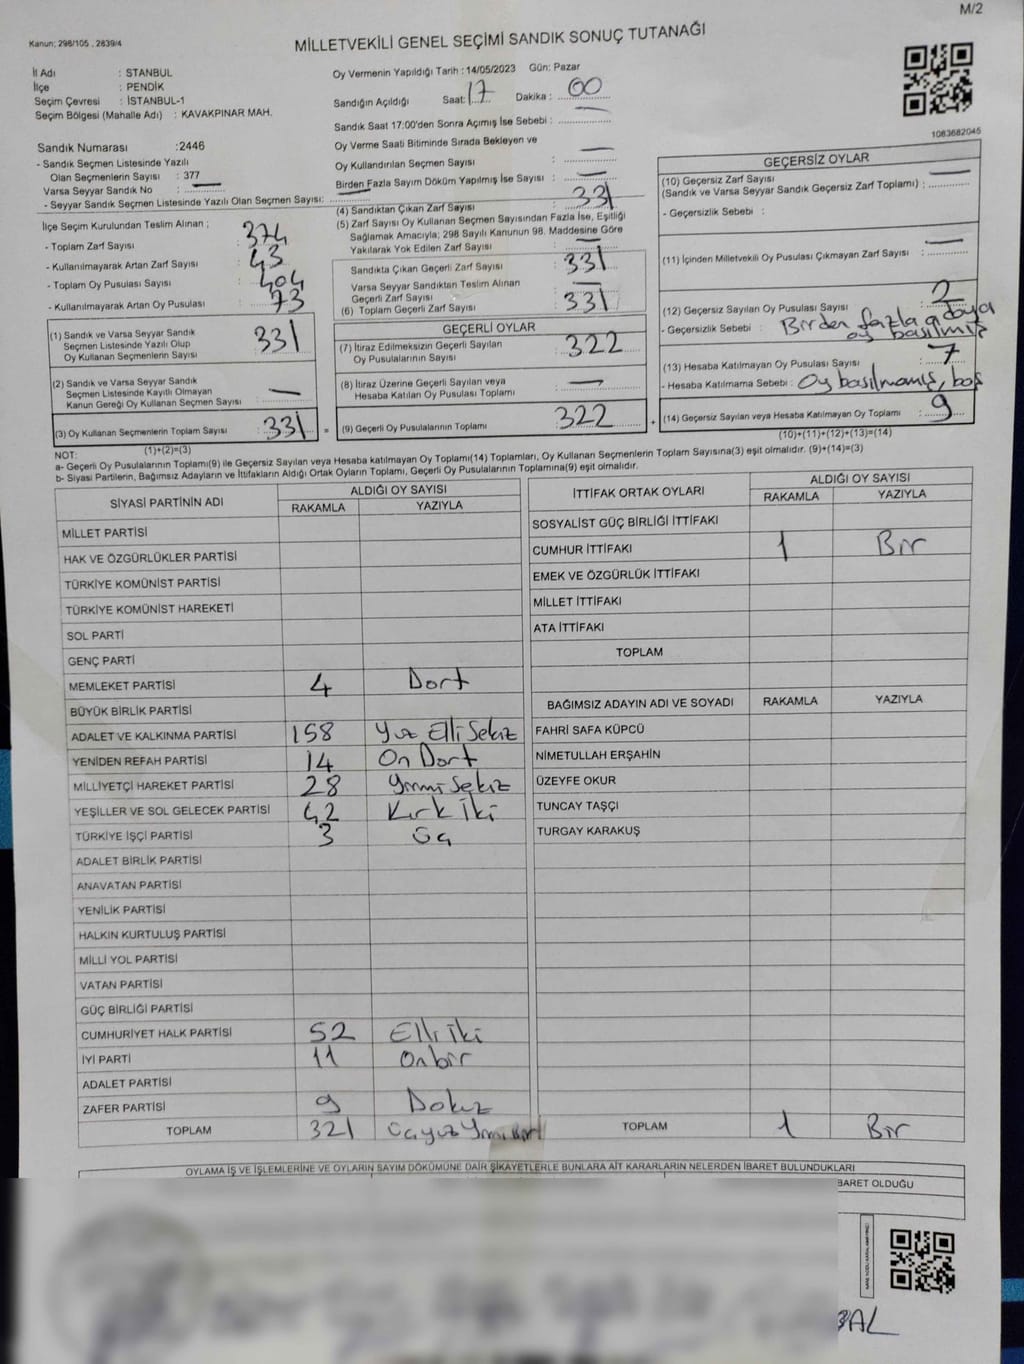 M/2
Kanun; 298/105 , 2839/4
MİLLETVEKİLİ GENEL SEÇİMİ SANDIK SONUÇ TUTANAĞI
İl Adı : STANBUL
İlçe : PENDİK
Seçim Çevresi : İSTANBUL-1
Seçim Bölgesi (Mahalle Adı) : KAVAKPINAR MAH.
Oy Vermenin Yapıldığı Tarih : 14/05/2023 Gün: Pazar
Sandığın Açıldığı Saat: 17 Dakika : 00
Sandık Saat 17:00'den Sonra Açımış İse Sebebi :
Oy Verme Saati Bitiminde Sırada Bekleyen ve
Oy Kullandırılan Seçmen Sayısı :
Birden Fazla Sayım Döküm Yapılmış İse Sayısı :
1083682045
Sandık Numarası :2446
- Sandık Seçmen Listesinde Yazılı
Olan Seçmenlerin Sayısı : 377
Varsa Seyyar Sandık No :
- Seyyar Sandık Seçmen Listesinde Yazılı Olan Seçmen Sayısı:
İlçe Seçim Kurulundan Teslim Alınan ;
- Toplam Zarf Sayısı : 374
- Kullanılmayarak Artan Zarf Sayısı : 43
- Toplam Oy Pusulası Sayısı : 404
- Kullanılmayarak Artan Oy Pusulası : 73
(1) Sandık ve Varsa Seyyar Sandık
Seçmen Listesinde Yazılı Olup
Oy Kullanan Seçmenlerin Sayısı : 331
(2) Sandık ve Varsa Seyyar Sandık
Seçmen Listesinde Kayıtlı Olmayan
Kanun Gereği Oy Kullanan Seçmen Sayısı : —
(3) Oy Kullanan Seçmenlerin Toplam Sayısı : 331
(1)+(2)=(3)
(4) Sandıktan Çıkan Zarf Sayısı : 331
(5) Zarf Sayısı Oy Kullanan Seçmen Sayısından Fazla İse, Eşitliği
Sağlamak Amacıyla; 298 Sayılı Kanunun 98. Maddesine Göre
Yakılarak Yok Edilen Zarf Sayısı : —
Sandıkta Çıkan Geçerli Zarf Sayısı : 331
Varsa Seyyar Sandıktan Teslim Alınan
Geçerli Zarf Sayısı : —
(6) Toplam Geçerli Zarf Sayısı : 331
GEÇERLİ OYLAR
(7) İtiraz Edilmeksizin Geçerli Sayılan
Oy Pusulalarının Sayısı : 322
(8) İtiraz Üzerine Geçerli Sayılan veya
Hesaba Katılan Oy Pusulası Toplamı : —
= (9) Geçerli Oy Pusulalarının Toplamı : 322 +
GEÇERSİZ OYLAR
(10) Geçersiz Zarf Sayısı
(Sandık ve Varsa Seyyar Sandık Geçersiz Zarf Toplamı) : —
- Geçersizlik Sebebi :
(11) İçinden Milletvekili Oy Pusulası Çıkmayan Zarf Sayısı : —
(12) Geçersiz Sayılan Oy Pusulası Sayısı : 2
- Geçersizlik Sebebi : Birden fazla adaya
oy basılmış
(13) Hesaba Katılmayan Oy Pusulası Sayısı : 7
- Hesaba Katılmama Sebebi : Oy basılmamış, boş
(14) Geçersiz Sayılan veya Hesaba Katılmayan Oy Toplamı : 9
(10)+(11)+(12)+(13)=(14)
NOT:
a- Geçerli Oy Pusulalarının Toplamı(9) ile Geçersiz Sayılan veya Hesaba katılmayan Oy Toplamı(14) Toplamları, Oy Kullanan Seçmenlerin Toplam Sayısına(3) eşit olmalıdır. (9)+(14)=(3)
b- Siyasi Partilerin, Bağımsız Adayların ve İttifakların Aldığı Ortak Oyların Toplamı, Geçerli Oy Pusulalarının Toplamına(9) eşit olmalıdır.
SİYASİ PARTİNİN ADI ALDIĞI OY SAYISI
RAKAMLA YAZIYLA
MİLLET PARTİSİ
HAK VE ÖZGÜRLÜKLER PARTİSİ
TÜRKİYE KOMÜNİST PARTİSİ
TÜRKİYE KOMÜNİST HAREKETİ
SOL PARTİ
GENÇ PARTİ
MEMLEKET PARTİSİ 4 Dört
BÜYÜK BİRLİK PARTİSİ
ADALET VE KALKINMA PARTİSİ 158 Yüz Elli Sekiz
YENİDEN REFAH PARTİSİ 14 On Dört
MİLLİYETÇİ HAREKET PARTİSİ 28 Yirmi Sekiz
YEŞİLLER VE SOL GELECEK PARTİSİ 42 Kırk İki
TÜRKİYE İŞÇİ PARTİSİ 3 Üç
ADALET BİRLİK PARTİSİ
ANAVATAN PARTİSİ
YENİLİK PARTİSİ
HALKIN KURTULUŞ PARTİSİ
MİLLİ YOL PARTİSİ
VATAN PARTİSİ
GÜÇ BİRLİĞİ PARTİSİ
CUMHURİYET HALK PARTİSİ 52 Elli İki
İYİ PARTİ 11 Onbir
ADALET PARTİSİ
ZAFER PARTİSİ 9 Dokuz
TOPLAM 321
İTTİFAK ORTAK OYLARI ALDIĞI OY SAYISI
RAKAMLA YAZIYLA
SOSYALİST GÜÇ BİRLİĞİ İTTİFAKI
CUMHUR İTTİFAKI 1 Bir
EMEK VE ÖZGÜRLÜK İTTİFAKI
MİLLET İTTİFAKI
ATA İTTİFAKI
TOPLAM
BAĞIMSIZ ADAYIN ADI VE SOYADI RAKAMLA YAZIYLA
FAHRİ SAFA KÜPCÜ
NİMETULLAH ERŞAHİN
ÜZEYFE OKUR
TUNCAY TAŞÇI
TURGAY KARAKUŞ
TOPLAM 1 Bir
OYLAMA İŞ VE İŞLEMLERİNE VE OYLARIN SAYIM DÖKÜMÜNE DAİR ŞİKAYETLERLE BUNLARA AİT KARARLARIN NELERDEN İBARET BULUNDUKLARI
BARET OLDUĞU